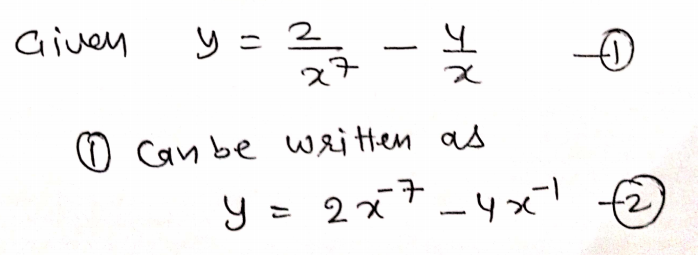 Given y = 2/x⁷ - 4/x -①
① Can be written as
y = 2x⁻⁷ - 4x⁻¹ -②